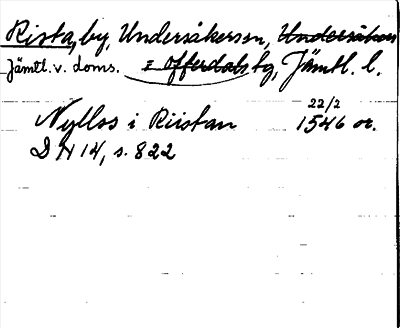 Rista, by, Undersåkers sn, Undersåkers
Jämtl. v. doms. o Offerdals tg, Jämtl. l.
22/2
Nyllss i Riistan 1546 or.
DN 14, s. 822